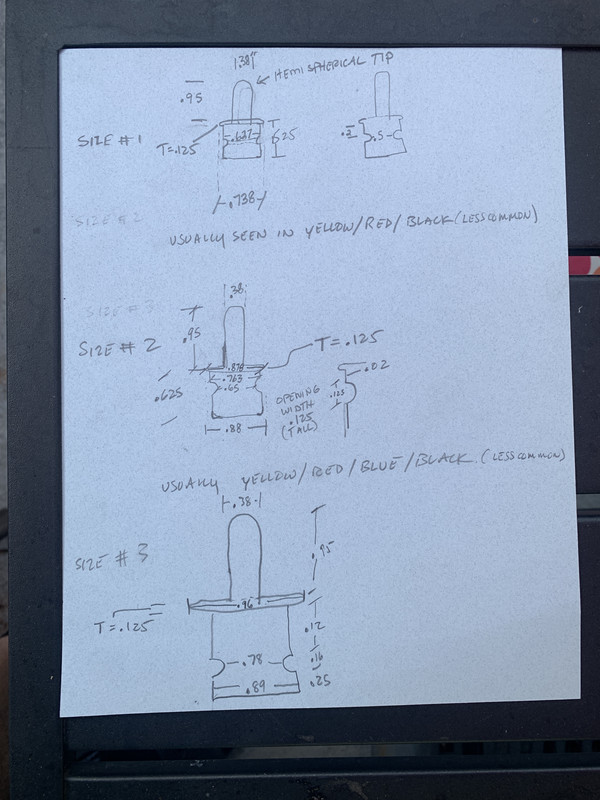 1.38"
HEMISPHERICAL TIP
.95
SIZE #1
T=.125
.637
.625
.2
.5
.738
SIZE #2
USUALLY SEEN IN YELLOW/RED/BLACK (LESS COMMON)
SIZE #3
.38
.95
SIZE #2
T=.125
.875
.763
.65
.625
.02
.125
OPENING
WIDTH
.125
(TALL)
.88
USUALLY YELLOW/RED/BLUE/BLACK (LESS COMMON)
.38
SIZE #3
.95
.96
T=.125
.12
.78
.16
.89
.25